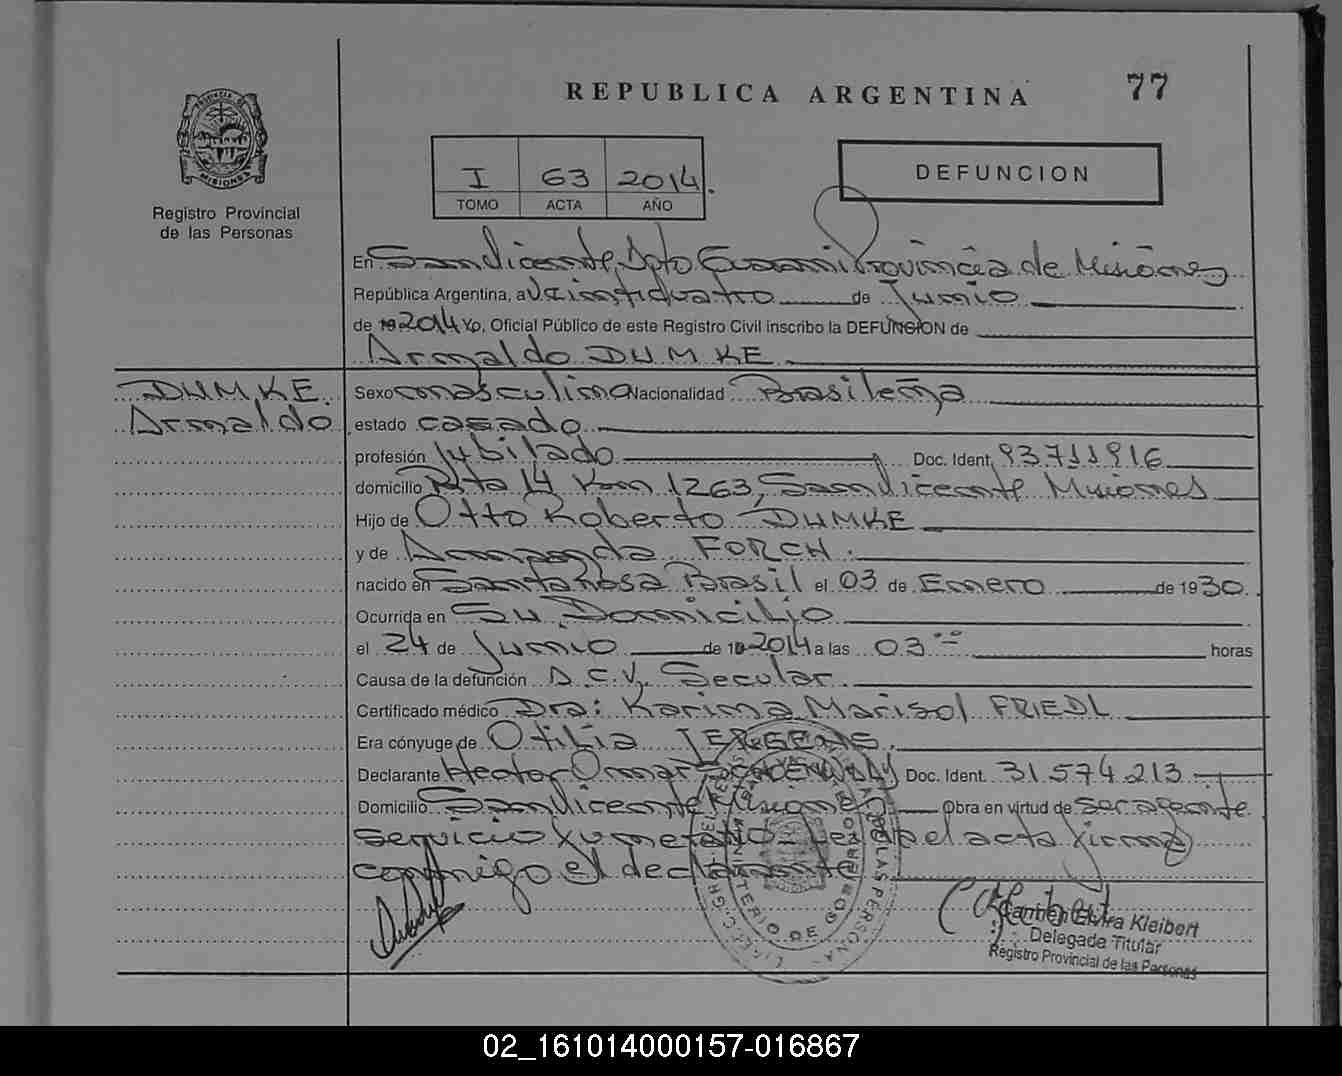 REPUBLICA ARGENTINA
77
PROVINCIA DE
MISIONES
Registro Provincial
de las Personas
I 63 2014.
TOMO ACTA AÑO
DEFUNCION
En San Vicente, Dpto Guarani Provincia de Misiones
República Argentina, a Veinticuatro de Junio
de 19 2014 Yo, Oficial Público de este Registro Civil inscribo la DEFUNCION de
Arnaldo DUMKE
DUMKE
Arnaldo
Sexo masculino Nacionalidad Brasileña
estado casado
profesión Jubilado Doc. Ident. 93711916
domicilio Ruta 14 Km 1263, San Vicente Misiones
Hijo de Otto Roberto DUMKE
y de Armanda FORCH.
nacido en Santa Rosa Brasil el 03 de Enero de 1930
Ocurrida en Su Domicilio
el 24 de Junio de 19 2014 a las 03 horas
Causa de la defunción A.C.V. Secular
Certificado médico Dra: Karina Marisol FRIEDL
Era cónyuge de Otilia
Declarante Hector Omar Doc. Ident. 31.574.213
Domicilio San Vicente Misiones Obra en virtud de ser agente
servicio funerario Leida el acta firma
conmigo el declarante
Carmen Elvira Kleibert
Delegada Titular
Registro Provincial de las Personas
02_161014000157-016867